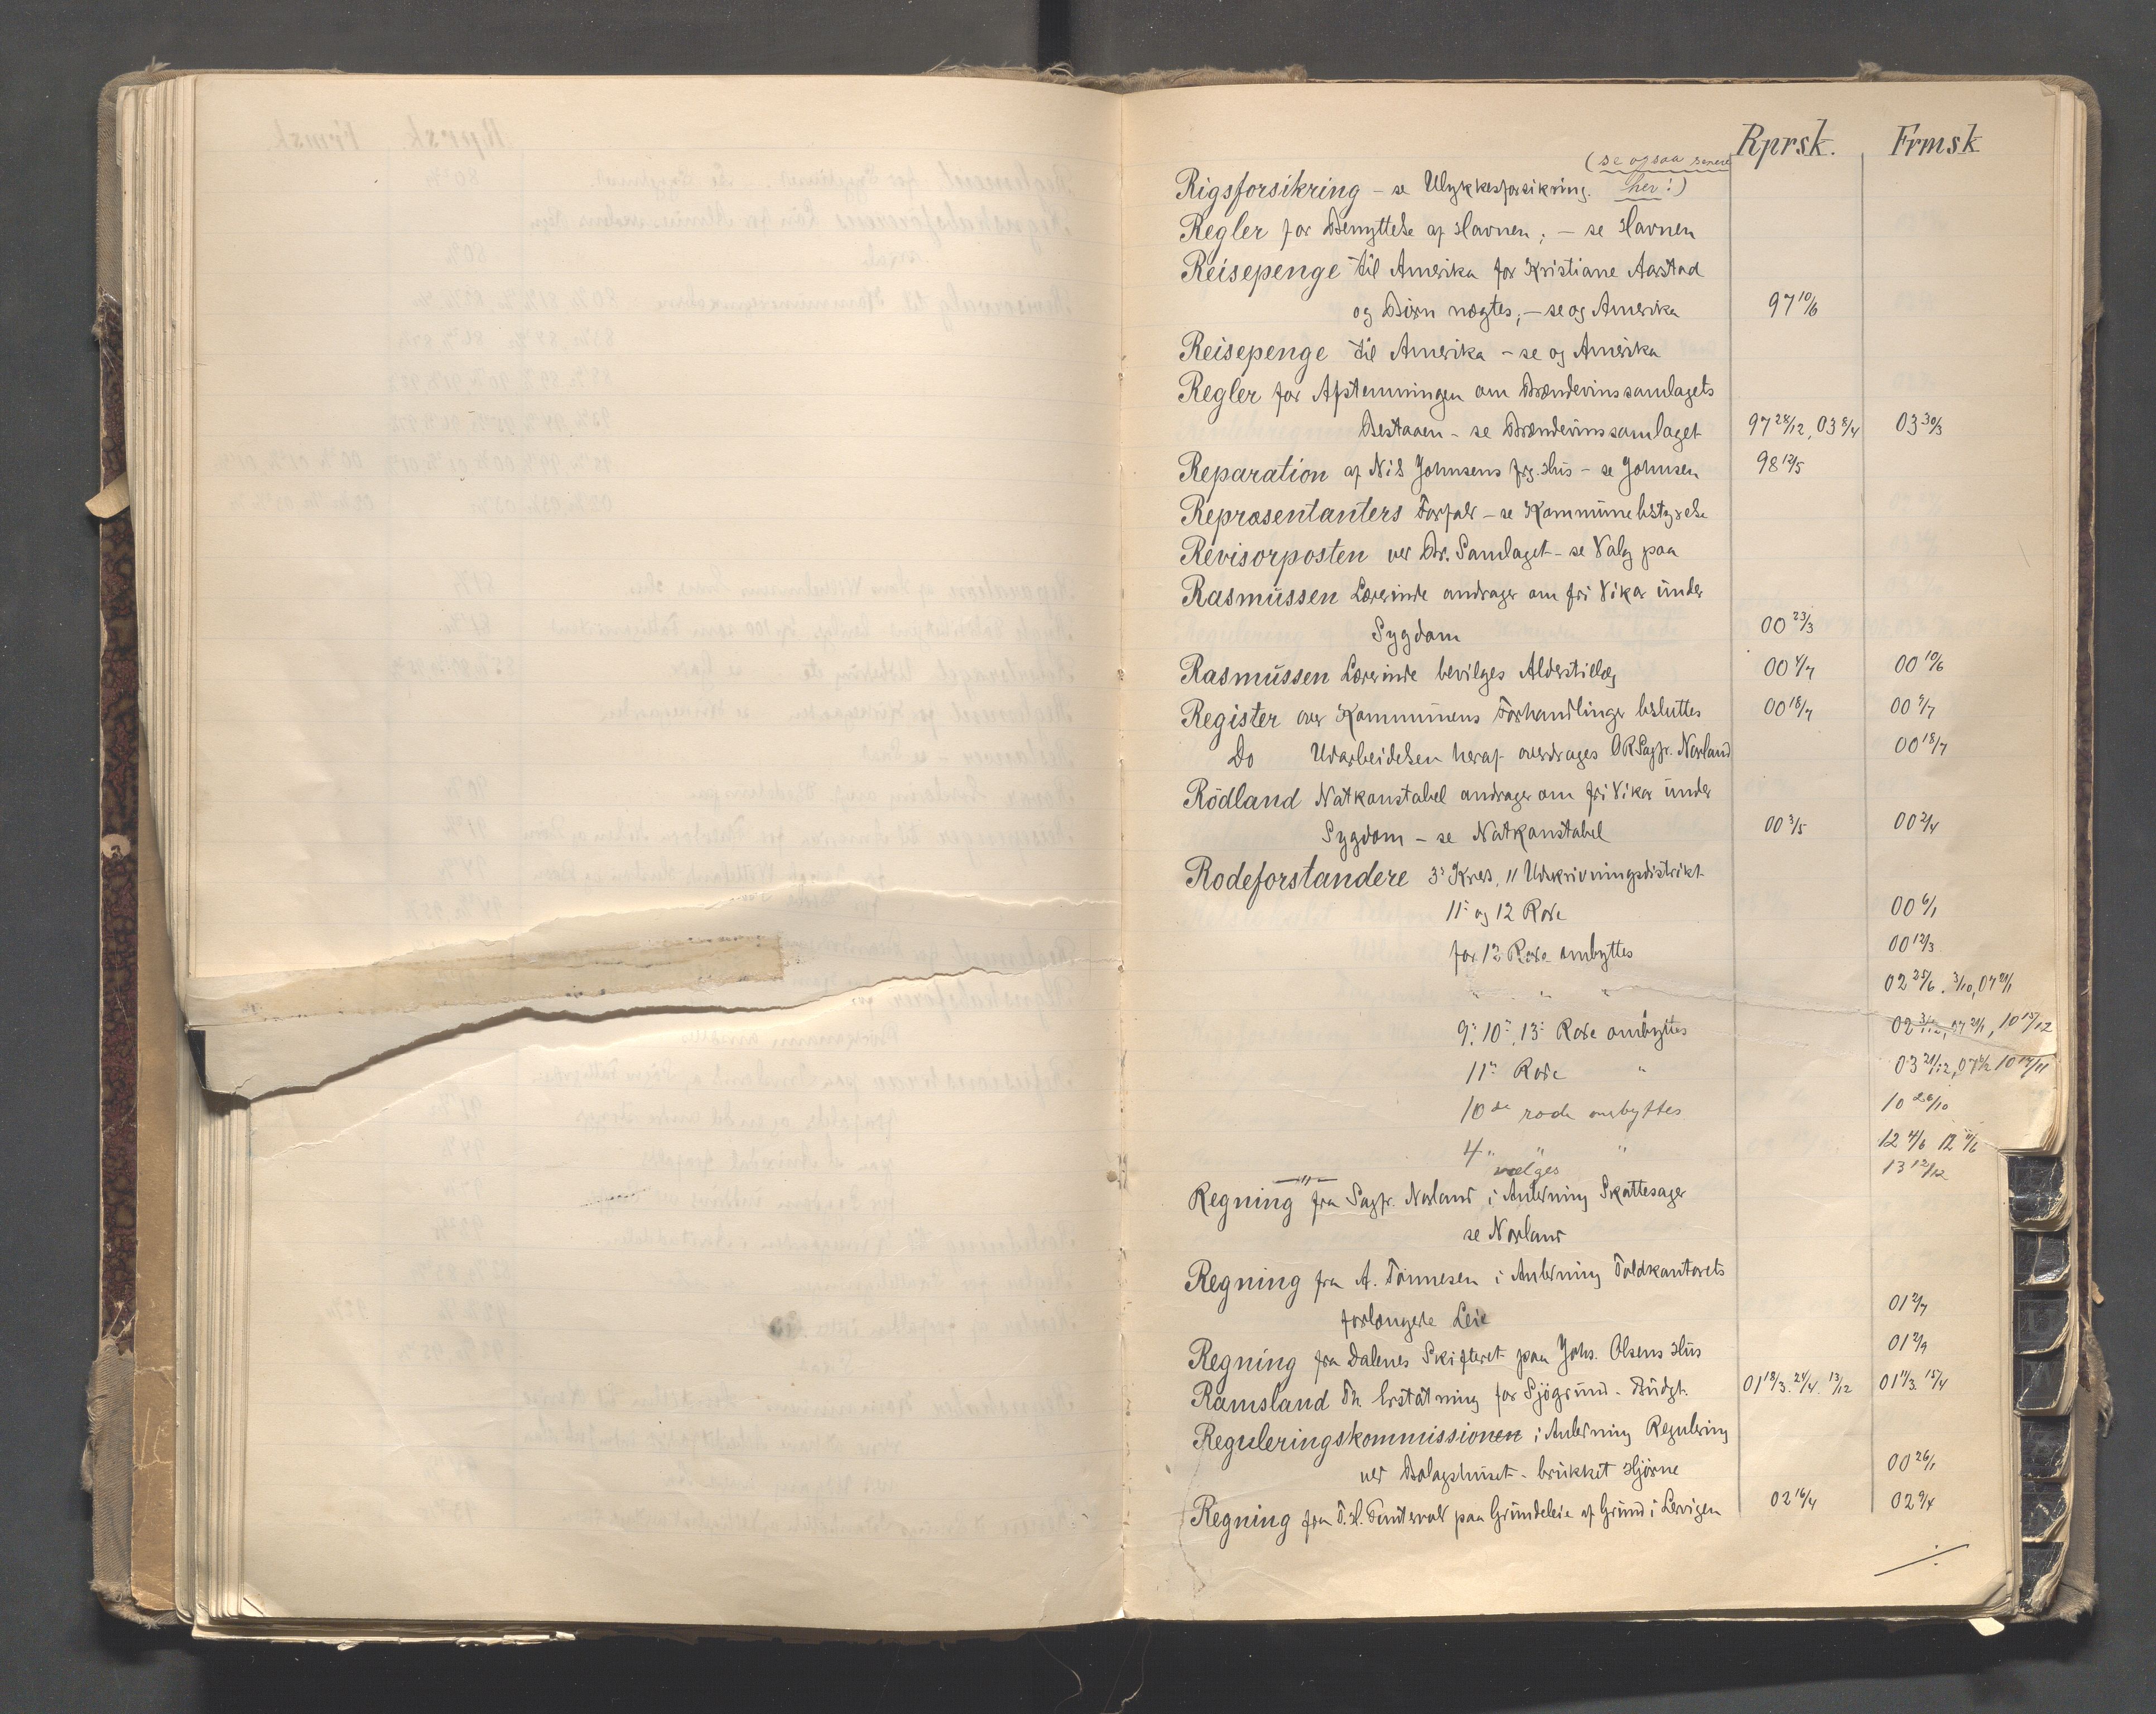 Rprsk. Frmsk
(se ogsaa senere
Rigsforsikring – se Ulykkesforsikring. her!)
Regler for Benyttelse af Havnen; – se Havnen
Reisepenge til Amerika for Kristiane Aarstad
og Börn nægtes; – se og Amerika 97 10/6
Reisepenge til Amerika – se og Amerika
Regler for Afstemningen om Brændevinssamlagets
Bestaaen – se Brændevinssamlaget 97 28/12, 03 8/4 03 30/3
Reparation af Nils Johnsens frg. Hus – se Johnsen 98 12/5
Repræsentanters Forfald – se Kommunebestyrelse
Revisorposten ved Br. Samlaget – se Valg paa
Rasmussen Lærerinde andrager om fri Vikar under
Sygdom 00 23/3
Rasmussen Lærerinde bevilges Alderstillæg 00 4/7 00 10/6
Register over Kommunens Forhandlinger besluttes 00 18/7 00 9/7
Do Udarbeidelsen heraf overdrages ORSagfr. Norland 00 18/7
Rödland Natkonstabel andrager om fri Vikar under
Sygdom – se Natkonstabel 00 3/5 00 2/4
Rodeforstandere 3: Kreds, 11 Udskrivningsdistrikt
11: og 12 Rode 00 6/1
for 12 Rode ombyttes 00 12/3
" " " 02 25/6. 3/10, 07 21/1
9: 10: 13: Rode ombyttes 02 3/12, 07 21/1, 10 15/12
11" Rode " 03 21/12, 10 14/11
10de rode ombyttes 10 26/10
4" " " 12 4/6
–"– vælges 13 12/12
Regning fra Sagfr. Norland i Anledning Skattesager
se Norland
Regning fra A. Tönnesen i Anledning Toldkontorets
forlængede Leie 01 2/7
Regning fra Dalenes Skifteret paa Johs. Olsens Hus 01 2/9
Ramsland Th. Erstatning for Sjögrund – Budgt. 01 18/3. 24/4. 13/12 01 11/3. 15/4
Reguleringskommissionen i Anledning Regulering
ved Bolagshuset – brukket Hjörne 00 26/1
Regning fra T. H. paa Grundeleie af Grund i Lervigen 02 16/4 02 9/4